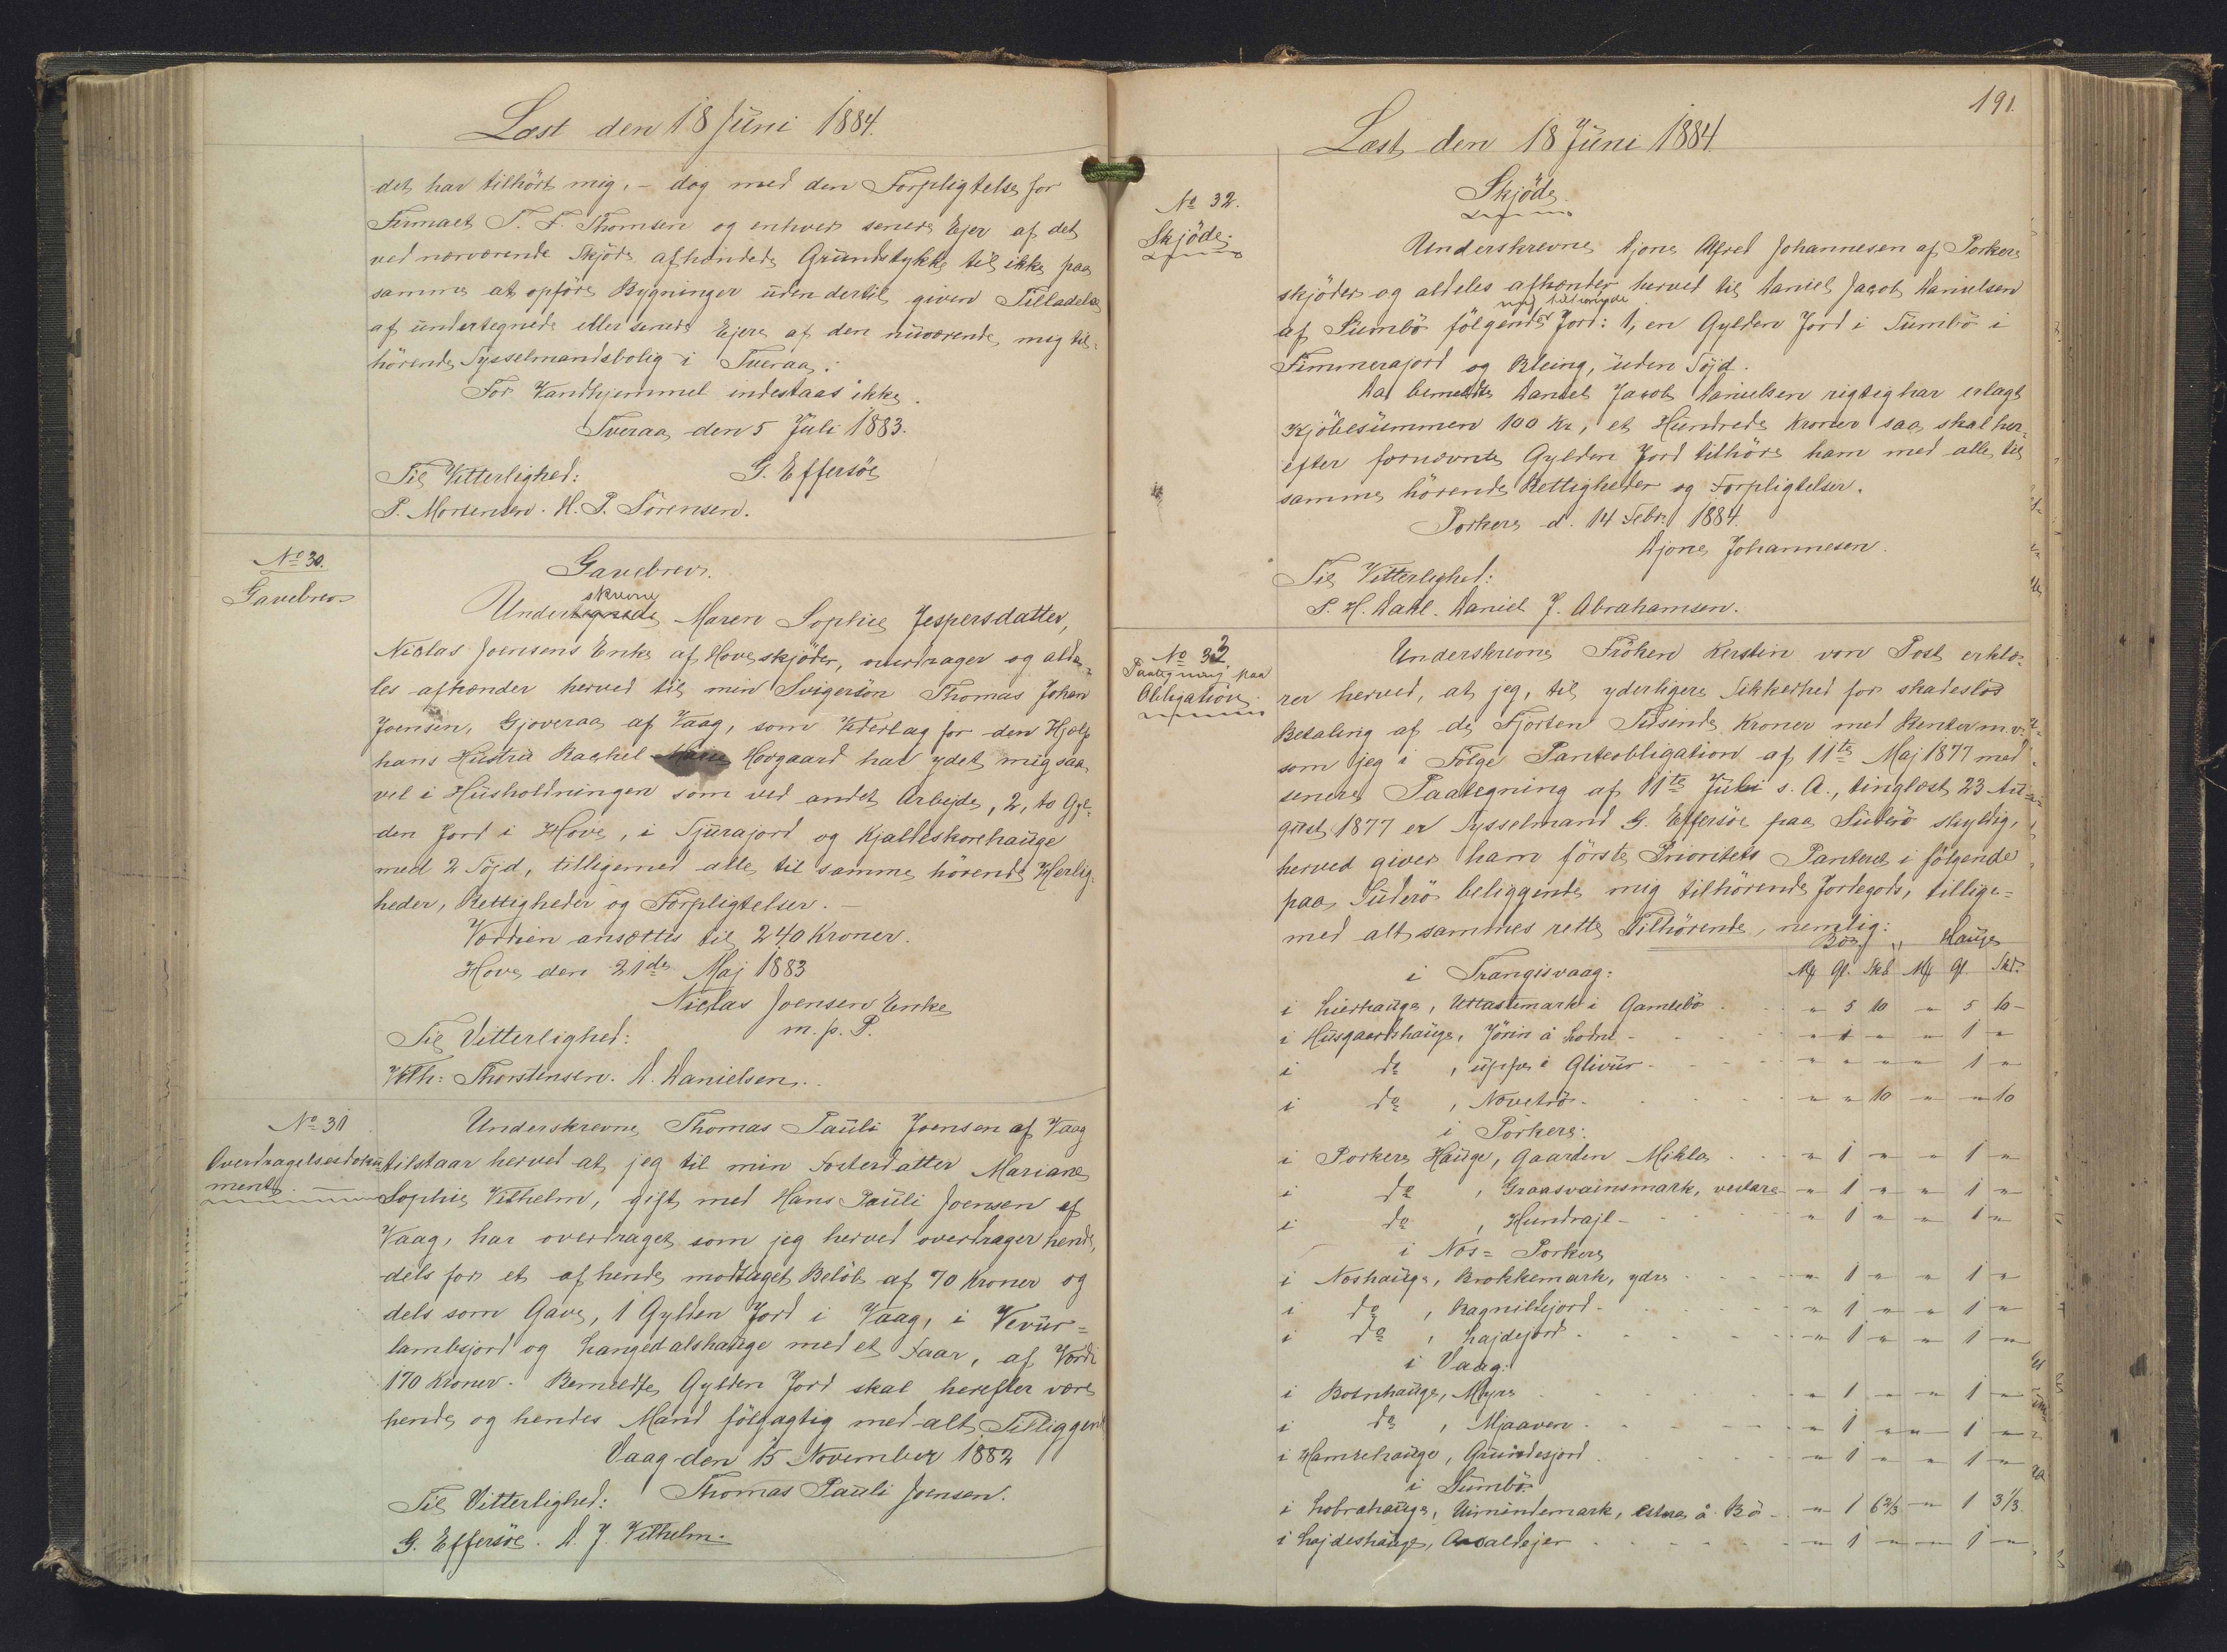 Læst den 18 Juni 1884.
det har tilhört mig, - dog med den Forpligtelse for
Firmaet T. F. Thomsen og enhver senere Ejer af det
ved nærværende Skjöde afhændede Grundstykke til ikke paa
samme at opföre Bygninger uden dertil given Tilladelse
af undertegnede eller senere Ejere af den nuværende mig til-
hörende Sysselmandsbolig i Tveraa.
For Vandhjemmel indestaas ikke.
Tveraa den 5 Juli 1883.
G. Effersöe
Til Vitterlighed:
P. Mortensen. H. P. Sörensen.
No 30.
Gavebrev
Gavebrev.
skrevne
Undertegnede Maren Sophie Jespersdatter,
Niclas Joensens Enke af Hove skjöder, overdrager og alde-
les afhænder herved til min Svigersön Thomas Johan
Joensen, Gjoveraa af Vaag, som Vederlag for den Hjælp
hans Hustru Rachel Marie Hovgaard har ydet mig saa
vel i Husholdningen som ved andet Arbejde, 2, to Gyl-
den Jord i Hove, i Tjurajord og Kjaldeskorehauge
med 2 Töjd, tilligemed alle til samme hörende Herlig-
heder, Rettigheder og Forpligtelser. -
Værdien ansættes til 240 Kroner.
Hove den 21de Maj 1883
Niclas Joensen Enke
m. p. P.
Til Vitterlighed:
Vilh: Thorstensen. D. Danielsen.
No 31
Overdragelsesdoku-
ment.
Underskrevne Thomas Pauli Joensen af Vaag
tilstaar herved at jeg til min Fosterdatter Mariane
Sophie Vilhelm, gift med Hans Pauli Joensen af
Vaag, har overdraget som jeg herved overdrager hende,
dels for et af hende modtaget Belöb af 70 Kroner og
dels som Gave, 1 Gylden Jord i Vaag, i Vevur-
lambsjord og Langedalshauge med et Faar, af Værdi
170 Kroner. Bemeldte Gylden Jord skal herefter være
hende og hendes Mand fölgagtig med alt Tilliggende
Vaag den 15 November 1882
Thomas Pauli Joensen.
Til Vitterlighed:
G. Effersöe. D. J. Vilhelm.
191.
Læst den 18 Juni 1884.
No 32.
Skjöde.
Skjöde.
Underskrevne Djone Alfred Johannesen af Porkere
skjöder og aldeles afhænder herved til Daniel Jacob Danielsen
mig tilhørende
af Sumbö fölgende Jord: 1, en Gylden Jord i Sumbö i
Timmerajord og Kleing, uden Töjd.
Da bemeldte Daniel Jacob Danielsen rigtig har erlagt
Kjöbesummen 100 Kr, et Hundrede Kroner saa skal her-
efter fornævnte Gylden Jord tilhöre ham med alle til
samme hörende Rettigheder og Forpligtelser.
Porkere d. 14 Febr. 1884.
Djone Johannesen.
Til Vitterlighed:
P. H. Dahl. Daniel J. Abrahamsen.
No 32.
Paategning paa
Obligation.
Underskrevne Fröken Kerstin von Post erklæ-
rer herved, at jeg, til yderligere Sikkerhed for skadeslös
Betaling af de Fjorten Tusinde Kroner med Renter m.v.
som jeg i Fölge Panteobligation af 11te Maj 1877 med
senere Paategning af 11te Juli s. A., tinglæst 23 Au-
gust 1877 er Sysselmand G. Effersöe paa Suderö skyldig,
herved giver ham förste Prioritets Panteret i fölgende
paa Suderö beliggende mig tilhörende Jordegods, tillige-
med alt sammes rette Tilhörende, nemlig:
Bö. " Hauge
i Trangisvaag: Mk Gl. Skd. Mk Gl. Skd.
i Lierhauge, Uttastemark i Gamlebö " 5 10 " 5 10
i Husgaardshauge, Jörin å Lodne " 1 " " 1 "
i do , uppe i Glivur " " " " 1 "
i do , Novetrö " " 10 " " 10
i Porkere:
i Porkere Hauge, Gaarden Mikla " 1 " " 1 "
i do , Graasvainsmark, vestare " 1 " " 1 "
i do , Hundrajl " 1 " " 1 "
i Nos= Porkere
i Noshauge, Brokkemark, ydre " 1 " " 1 "
i do , Ragnildejord " 1 " " 1 "
i do , Lajdejord " 1 " " 1 "
i Vaag:
i Botnhauge, Myre " 1 " " 1 "
i do , Mjaaven " 1 " " 1 "
i Hamrehauge, Grundesjord " 1 " " 1 "
i Sumbö
i Lobrahauge, Uimindemark, estere å Bö " 1 6 2/3 " 1 3 1/3
i Lajdeshauge, " 1 " " 1 "